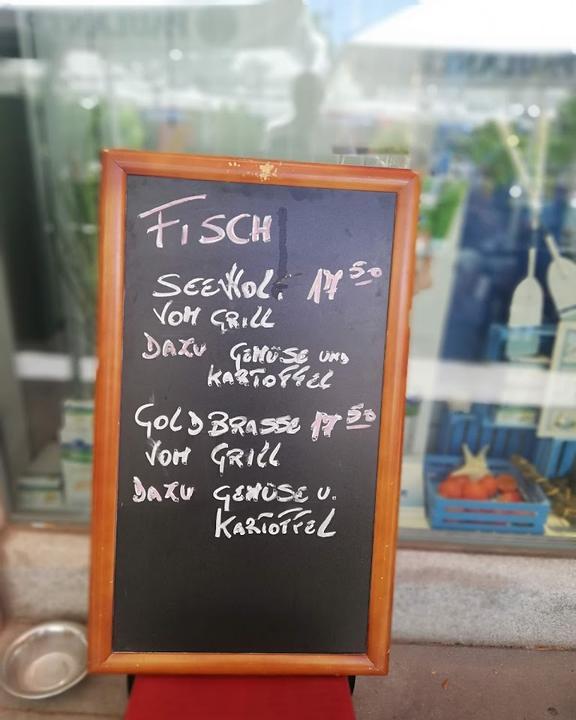 FISCH
SEEWOLF 17 50
VOM GRILL
DAZU GEMÜSE UND
KARTOFFEL
GOLDBRASSE 17 50
VOM GRILL
DAZU GEMÜSE U.
KARTOFFEL